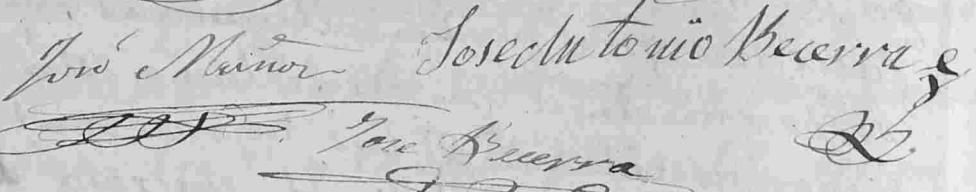 José Muñoz Jose Antonio Becerra
Jose Becerra